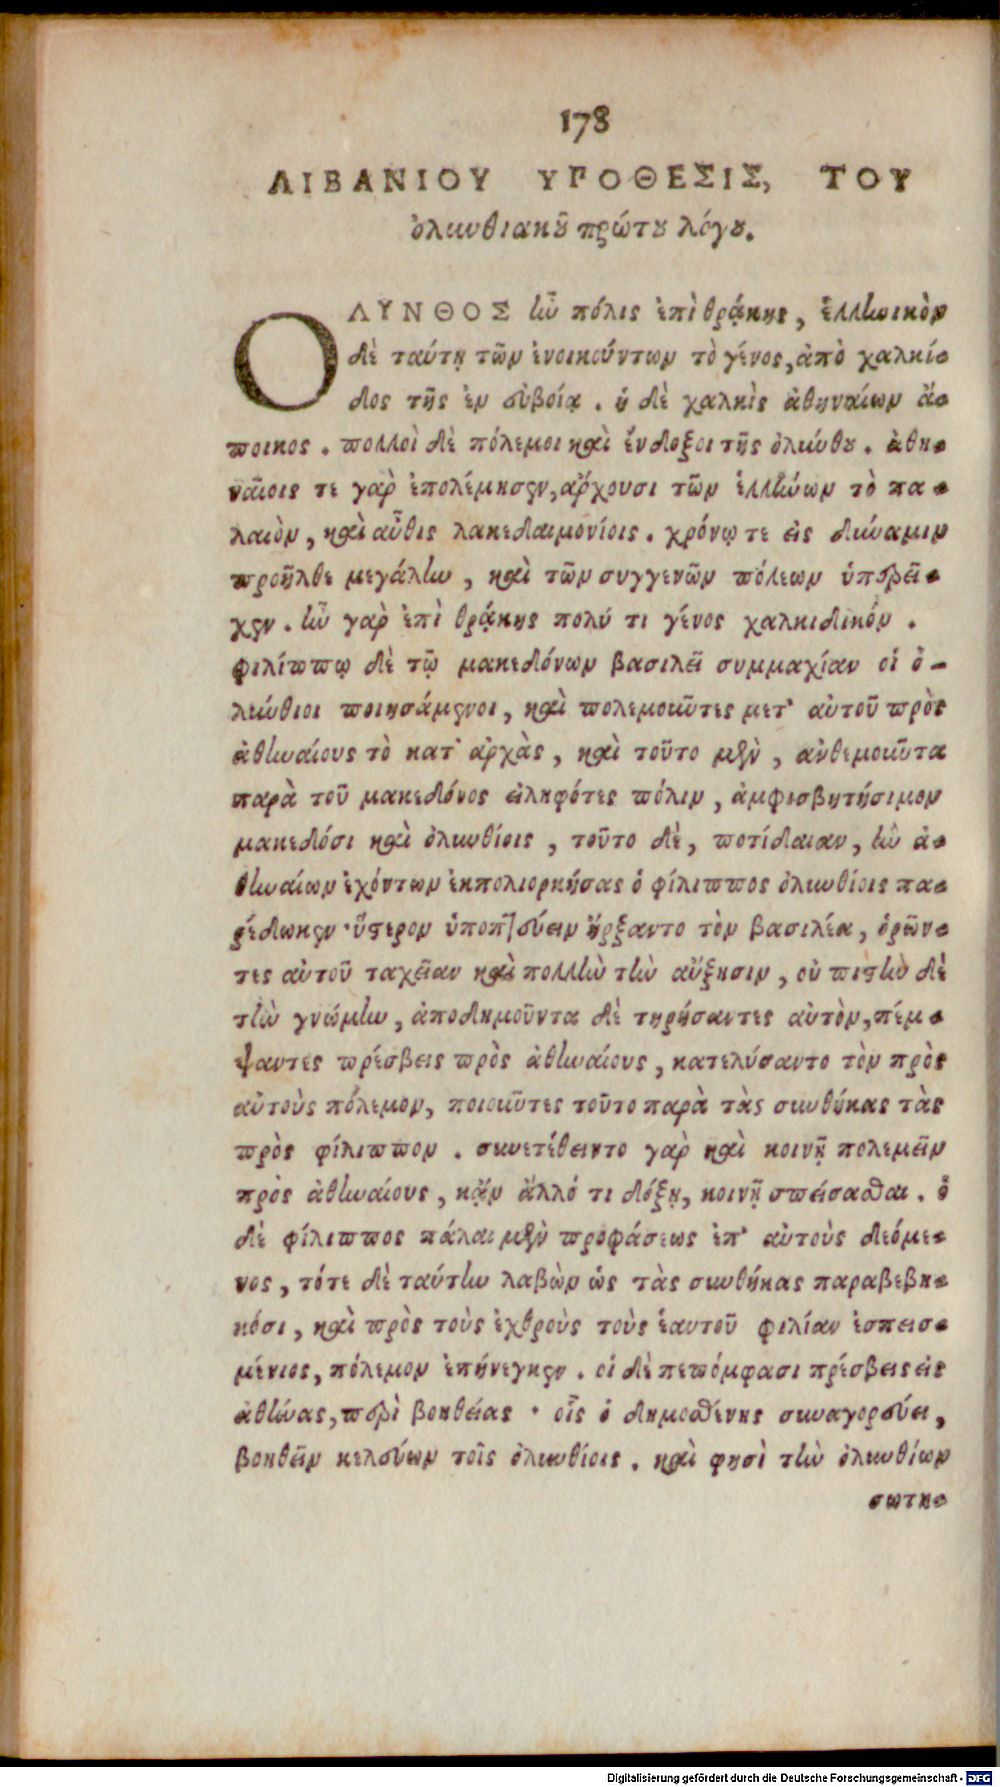 178
ΛΙΒΑΝΙΟΥ ΥΠΟΘΕΣΙΣ, ΤΟΥ
ὀλυνθιακοῦ πρώτου λόγου.
ΟΛΥΝΘΟΣ ἦν πόλις ἐπὶ θρᾴκης, ἑλληνικὸν
δὲ ταύτῃ τῶν ἐνοικούντων τὸ γένος, ἀπὸ χαλκί-
δος τῆς ἐν εὐβοίᾳ. ἡ δὲ χαλκὶς ἀθηναίων ἄ-
ποικος. πολλοὶ δὲ πόλεμοι καὶ ἔνδοξοι τῆς ὀλύνθου. ἀθη-
ναίοις τε γὰρ ἐπολέμησεν, ἄρχουσι τῶν ἑλλήνων τὸ πα-
λαιὸν, καὶ αὖθις λακεδαιμονίοις. χρόνῳ τε εἰς δύναμιν
προῆλθε μεγάλην, καὶ τῶν συγγενῶν πόλεων ὑπερεῖ-
χεν. ἦν γὰρ ἐπὶ θρᾴκης πολύ τι γένος χαλκιδικόν.
φιλίππῳ δὲ τῷ μακεδόνων βασιλεῖ συμμαχίαν οἱ ὀ-
λύνθιοι ποιησάμενοι, καὶ πολεμοῦντες μετ' αὐτοῦ πρὸς
ἀθηναίους τὸ κατ' ἀρχὰς, καὶ τοῦτο μὲν, ἀνθεμοῦντα
παρὰ τοῦ μακεδόνος εἰληφότες πόλιν, ἀμφισβητήσιμον
μακεδόσι καὶ ὀλυνθίοις, τοῦτο δὲ, ποτίδαιαν, ἣν ἀ-
θηναίων ἐχόντων ἐκπολιορκήσας ὁ φίλιππος ὀλυνθίοις πα-
ρέδωκεν· ὕστερον ὑποπτεύειν ἤρξαντο τὸν βασιλέα, ὁρῶν-
τες αὐτοῦ ταχεῖαν καὶ πολλὴν τὴν αὔξησιν, οὐ πιστὴν δὲ
τὴν γνώμην, ἀποδημοῦντα δὲ τηρήσαντες αὐτὸν, πέμ-
ψαντες πρέσβεις πρὸς ἀθηναίους, κατελύσαντο τὸν πρὸς
αὐτοὺς πόλεμον, ποιοῦντες τοῦτο παρὰ τὰς συνθήκας τὰς
πρὸς φίλιππον. συνετέθειντο γὰρ καὶ κοινῇ πολεμεῖν
πρὸς ἀθηναίους, κᾂν ἄλλό τι δόξῃ, κοινῇ σπείσασθαι. ὁ
δὲ φίλιππος πάλαι μὲν προφάσεως ἐπ' αὐτοὺς δεόμε-
νος, τότε δὲ ταύτην λαβὼν ὡς τὰς συνθήκας παραβεβη-
κόσι, καὶ πρὸς τοὺς ἐχθροὺς τοὺς ἑαυτοῦ φιλίαν ἐσπεισ-
μένιος, πόλεμον ἐπήνεγκεν. οἱ δὲ πεπόμφασι πρέσβεις εἰς
ἀθήνας, περὶ βοηθείας· οἷς ὁ δημοσθένης συναγορεύει,
βοηθεῖν κελεύων τοῖς ὀλυνθίοις. καὶ φησὶ τὴν ὀλυνθίων
σωτη-
Digitalisierung gefördert durch die Deutsche Forschungsgemeinschaft - DFG